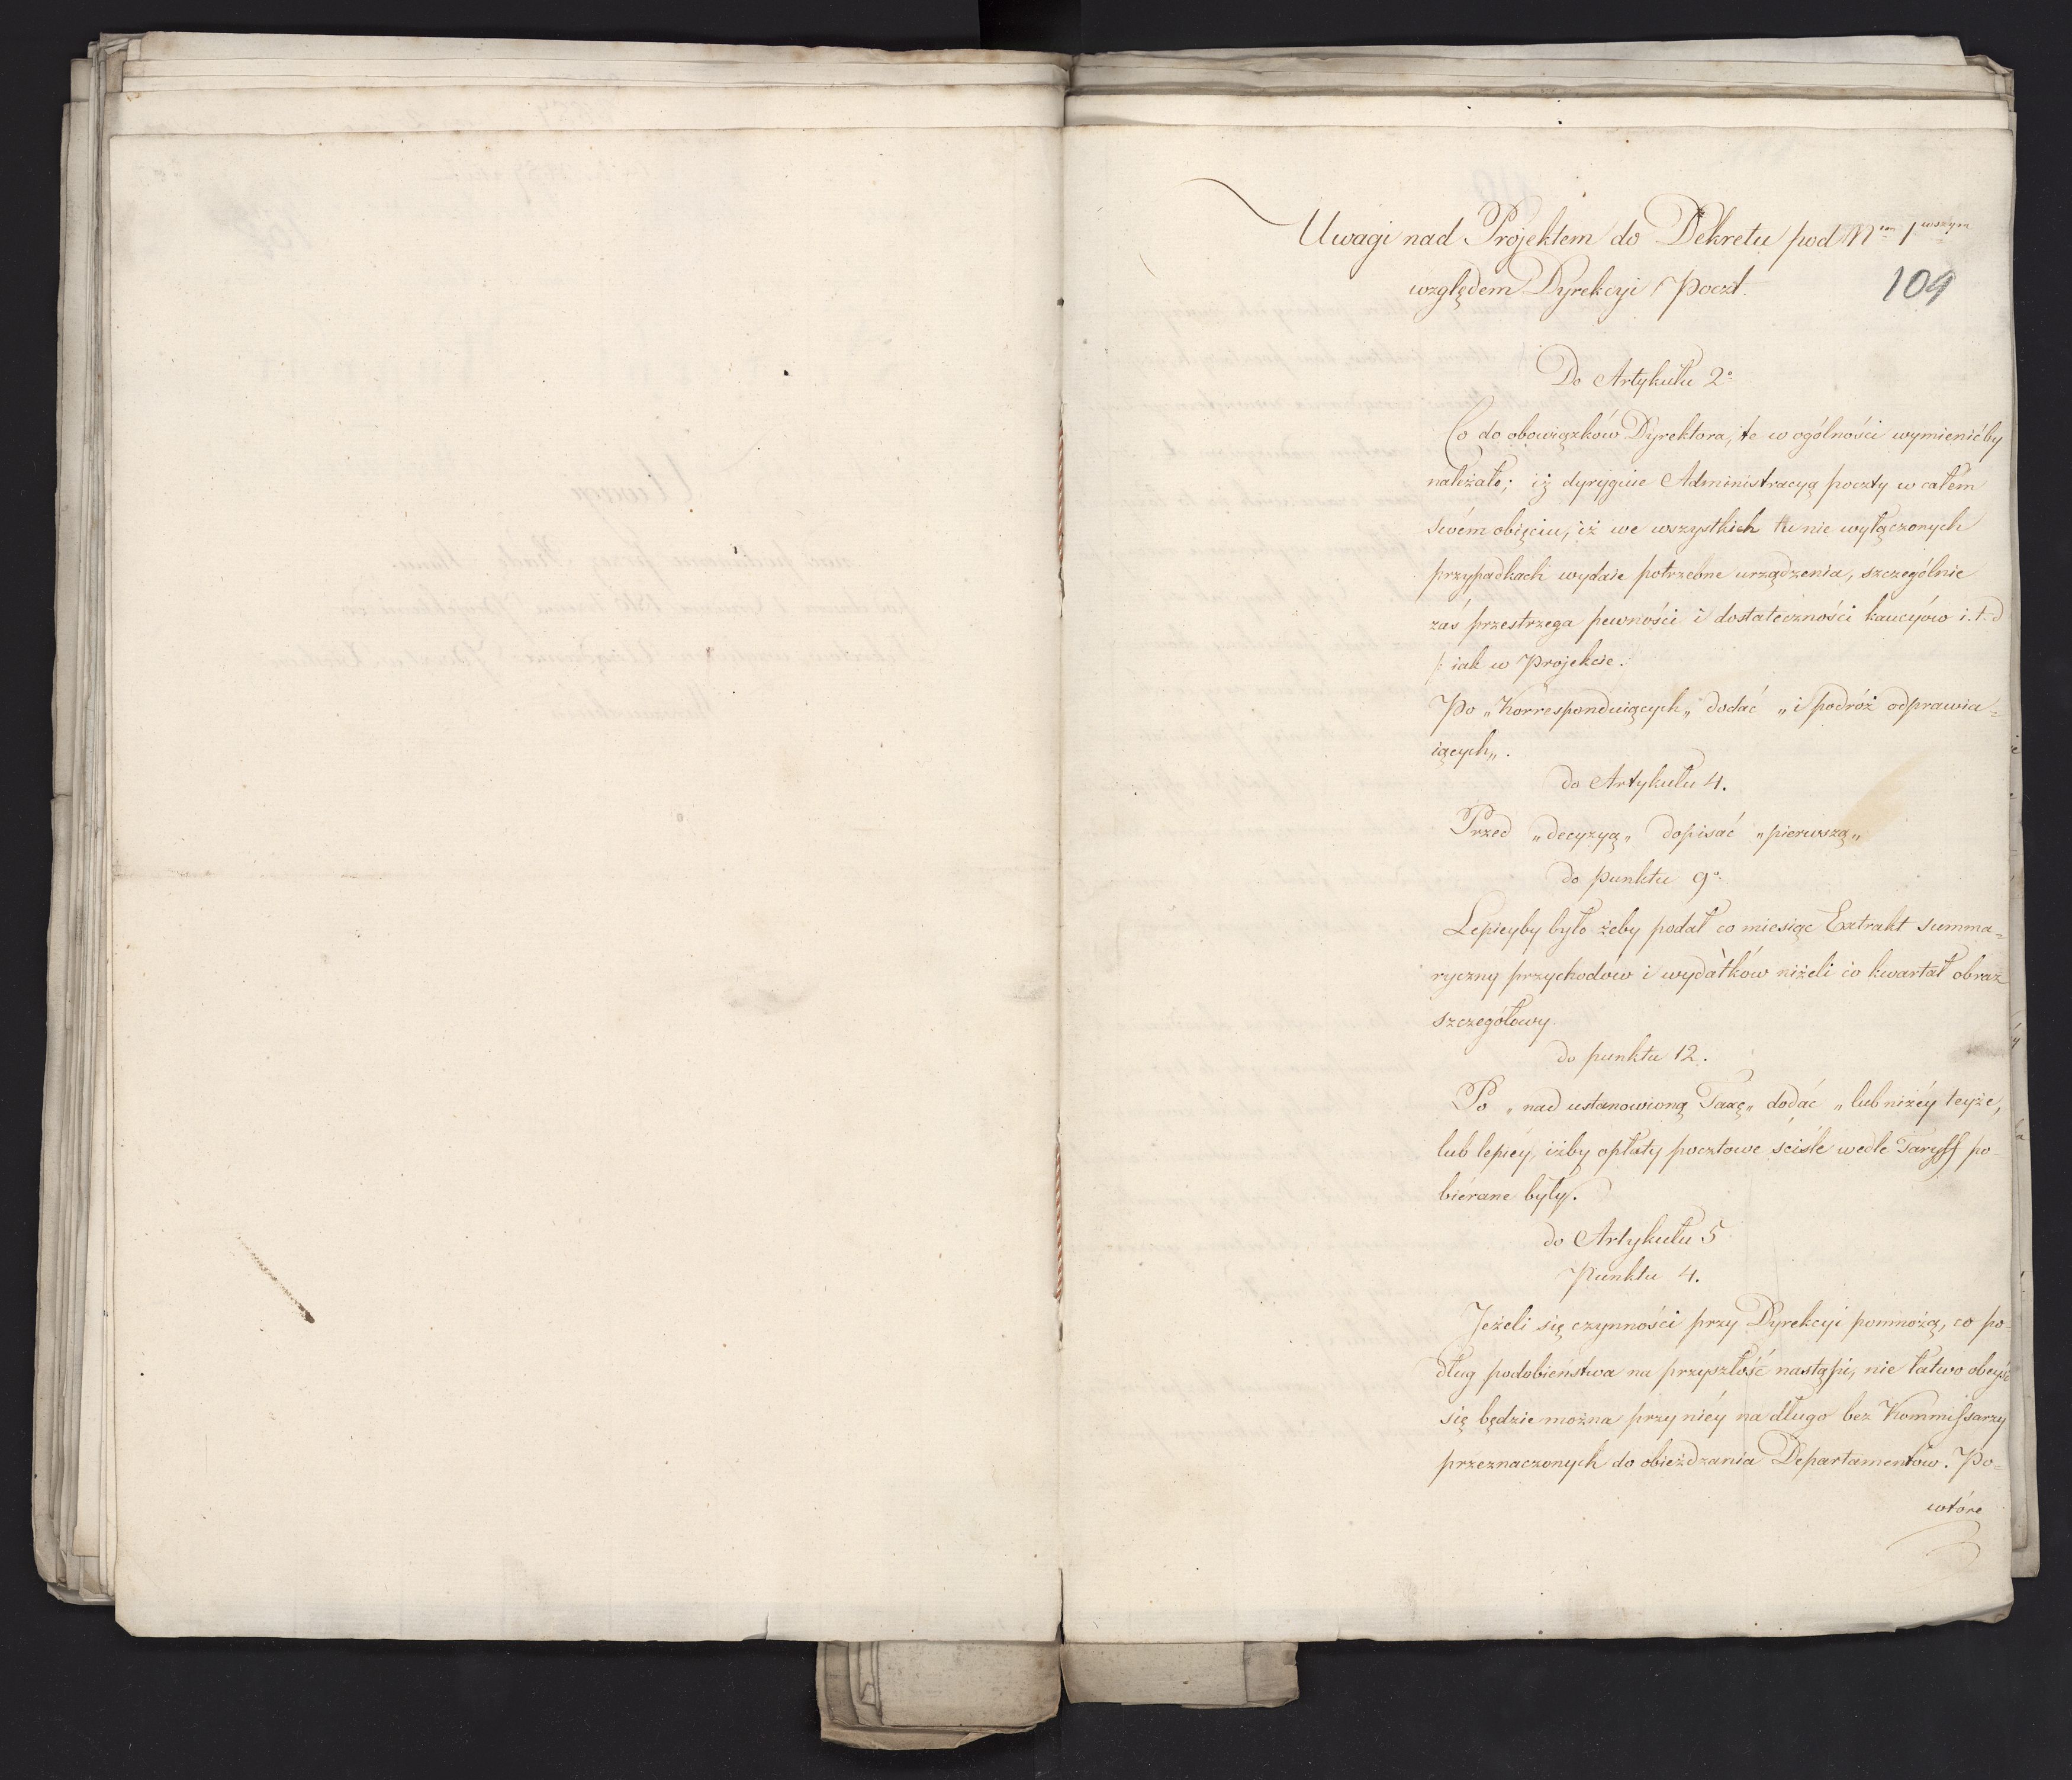 Uwagi nad Projektem do Dekretu pod Nrem 1wszym
względem Dyrekcyi Poczt.
109
Do Artykułu 2o
Co do obowiązków Dyrektora, te w ogólności wymienićby
należało; iż dyryguie Administracyą poczty w całém
swém obięciu, iż we wszystkich tu nie wyłączonych
przypadkach wydaie potrzebne urządzenia, szczególnie
zaś przestrzega pewności i dostateczności kaucyów i.t.d
/: iak w Projekcie.
Po „Korresponduiących„ dodać „i podróż odprawia=
iących„.
do Artykułu 4.
Przed „decyzyą„ dopisać „pierwszą„
do punktu 9o
Lepieyby było żeby podał co miesiąc Extrakt summa=
ryczny przychodów i wydatków niżeli co kwartał obraz
szczegółowy.
do punktu 12.
Po „nad ustanowioną Taxę„ dodać „lub niżéy teyże,
lub lepiéy, iżby opłaty pocztowe ściśle wedle Taryff po-
biérane były.
do Artykułu 5
Punktu 4.
Jeżeli się czynności przy Dyrekcyi pomnożą, co po-
dług podobieństwa na przyszłość nastąpi, nie łatwo obeyść
się będzie można przy niéy na długo bez Kommissarzy
przeznaczonych do obieżdzania Departamentów. Po=
wtóre